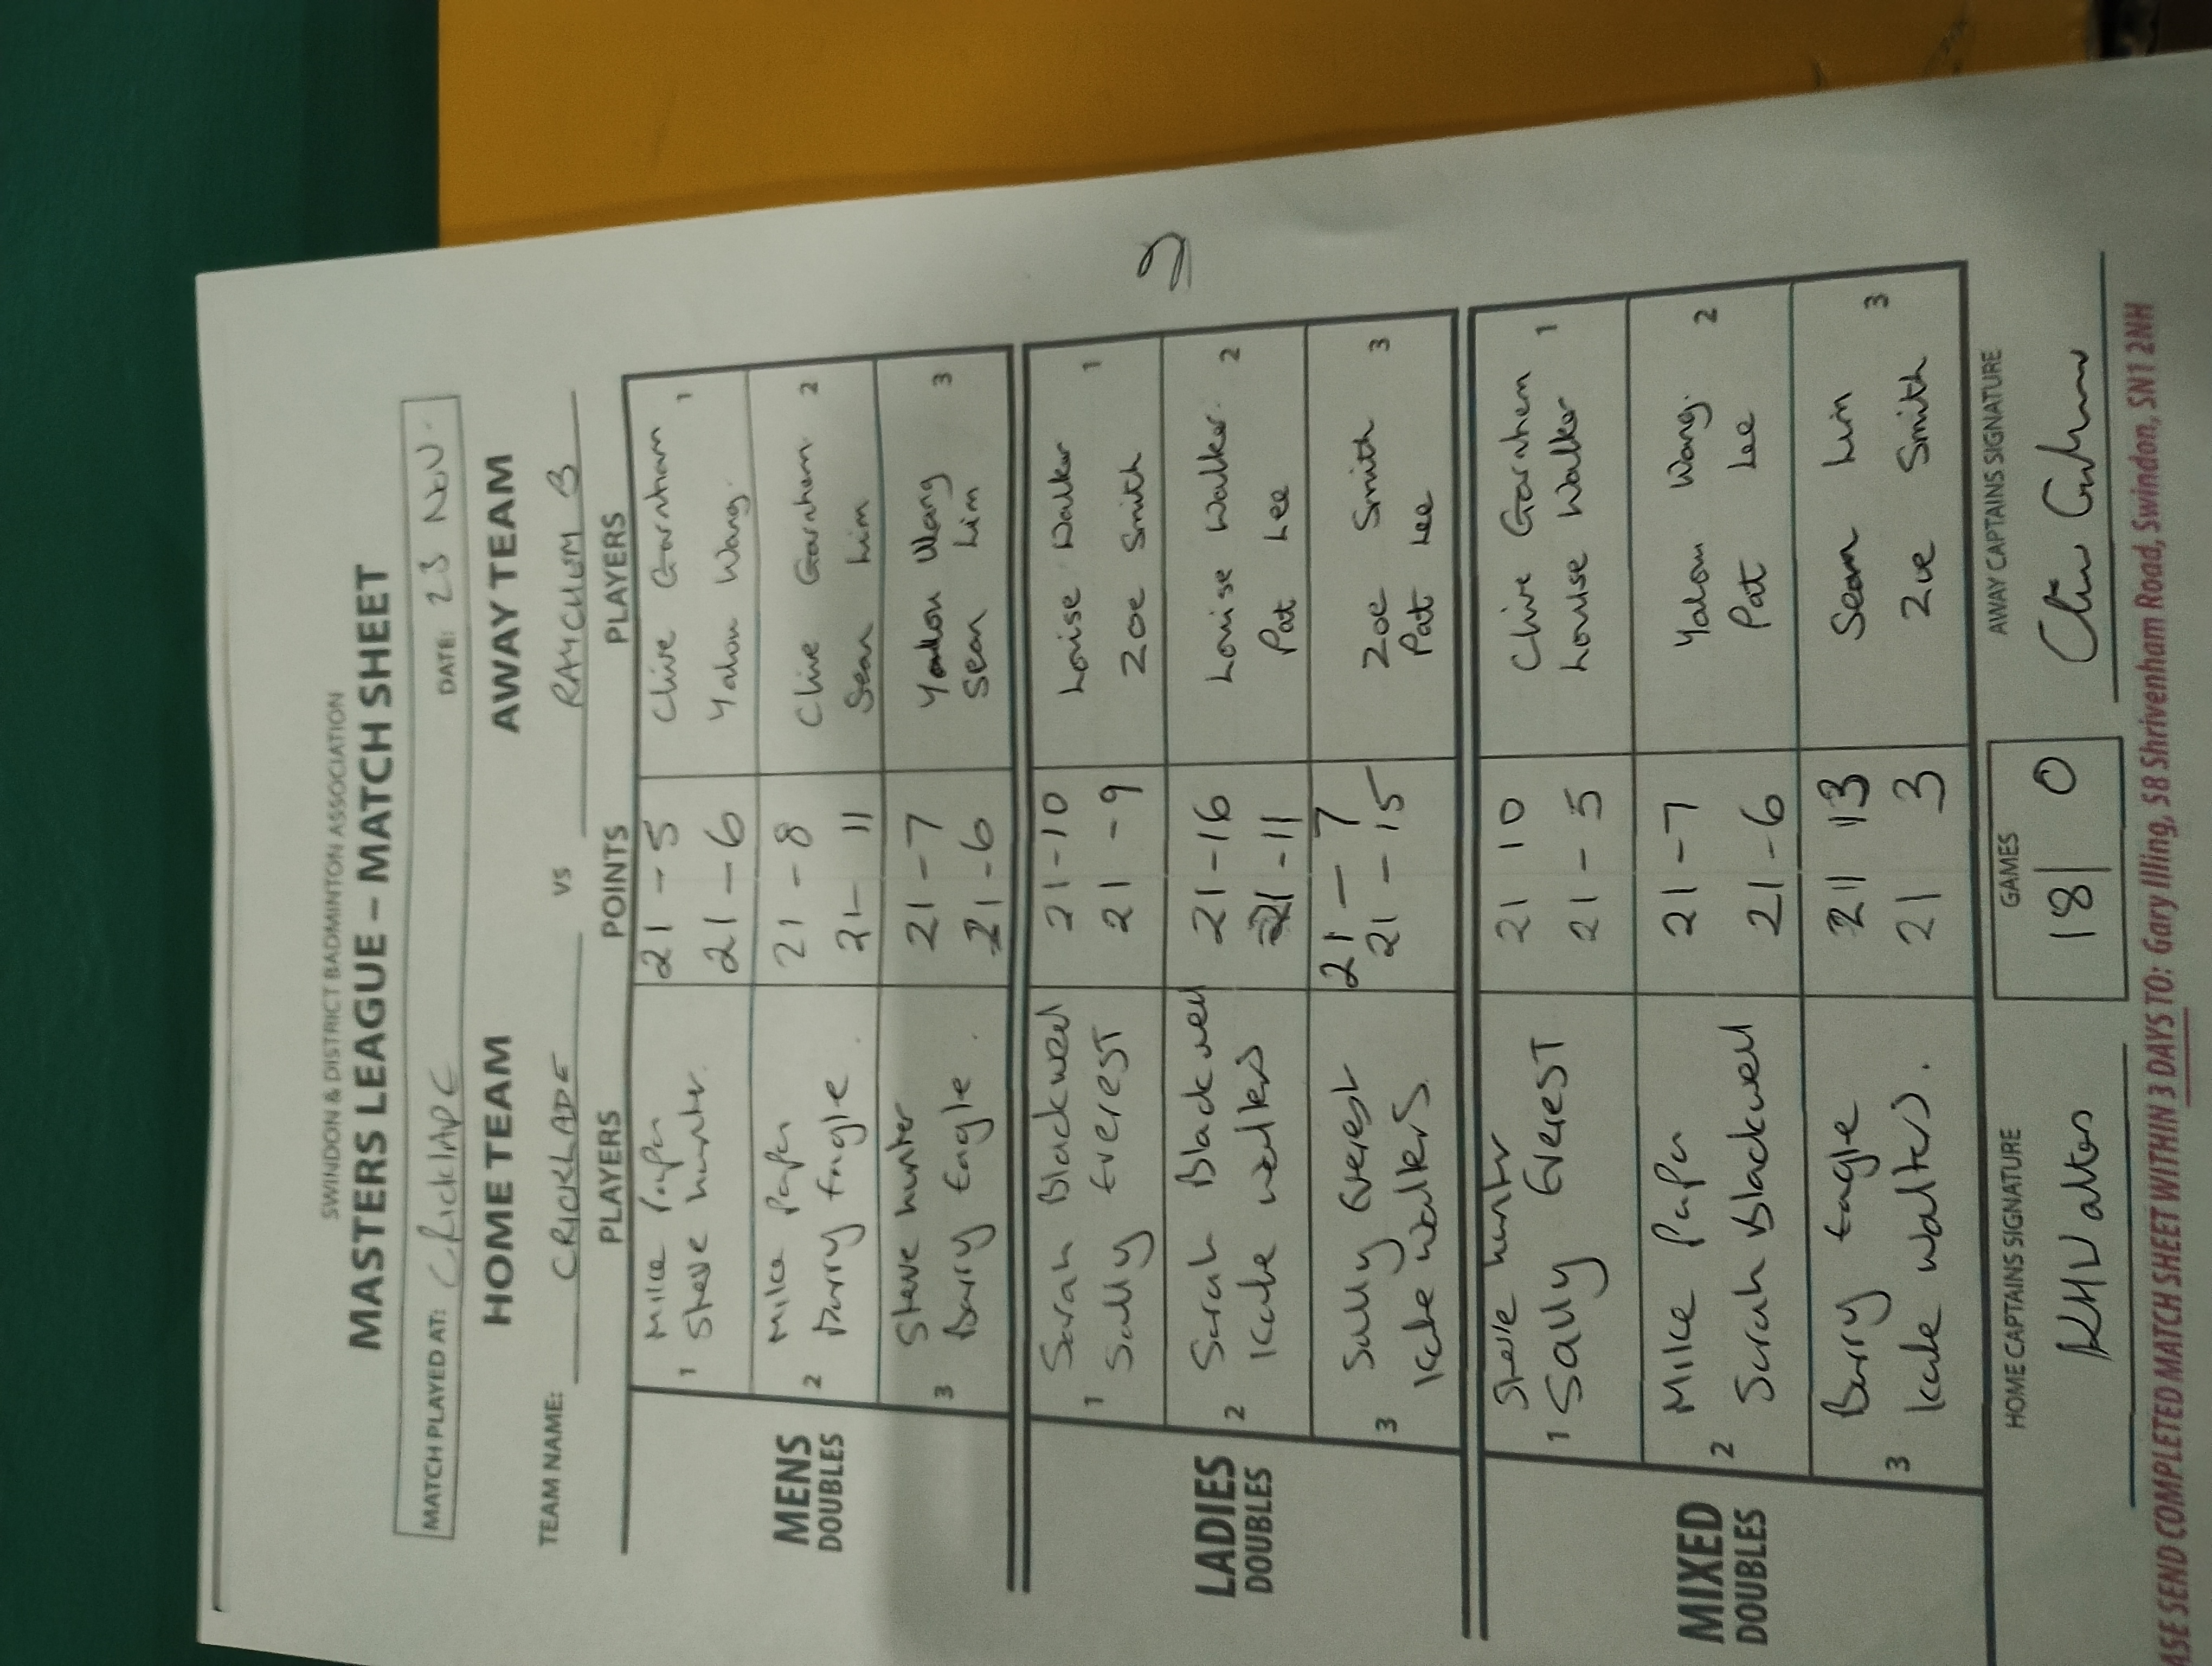 SWINDON & DISTRICT BADMINTON ASSOCIATION
MASTERS LEAGUE – MATCH SHEET
MATCH PLAYED AT: CRICKLADE DATE: 23 NOV.
HOME TEAM AWAY TEAM
TEAM NAME: CRICKLADE VS RAYCLUM B
PLAYERS POINTS PLAYERS
MENS DOUBLES
1 Mike Papa 21 - 5 Clive Garnham 1
Steve hunter. 21 - 6 Yalon Wang.
2 Mike Papa 21 - 8 Clive Garnham 2
Barry Eagle. 21- 11 Sean Lim
3 Steve hunter 21 - 7 Yalon Wang 3
Barry Eagle. 21 - 6 Sean Lim
LADIES DOUBLES
1 Sarah Blackwell 21-10 Louise Walker 1
Sally EVEREST 21 - 9 Zoe Smith
2 Sarah Blackwell 21-16 Louise Walker. 2
Kate walters 21 -11 Pat Lee
3 Sally Everest 21 - 7 Zoe Smith 3
Kate walters. 21 - 15 Pat Lee
2
MIXED DOUBLES
1 Steve hunter 21 10 Clive Garnham 1
Sally EVEREST 21 - 5 Louise Walker
2 Mike Papa 21 - 7 Yalon Wang. 2
Sarah Blackwell 21 - 6 Pat Lee
3 Barry Eagle 21 13 Sean Lim 3
Kate walters. 21 3 Zoe Smith
HOME CAPTAINS SIGNATURE GAMES AWAY CAPTAINS SIGNATURE
KHWalters 18 0
ASE SEND COMPLETED MATCH SHEET WITHIN 3 DAYS TO: Gary Illing, 58 Shrivenham Road, Swindon, SN1 2NH